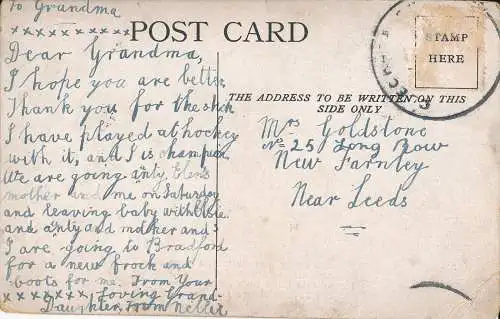 to Grandma
xxxxxxxxxxxx
POST CARD
Dear Grandma,
I hope you are better
Thank you for the stick
I have played at hockey
with it, and I is champion.
We are going only Elens
mother and me on Saturday
and leaving baby with Elsie.
and only and mother and
I are going to Bradford
for a new frock and
boots for me. From Your
xxxxxxxx Loving Grand-
Daughter, from Nellie
STAMP
HERE
THE ADDRESS TO BE WRITTEN ON THIS
SIDE ONLY
Mrs Goldstone
No 25 Long Row
New Farnley
Near Leeds